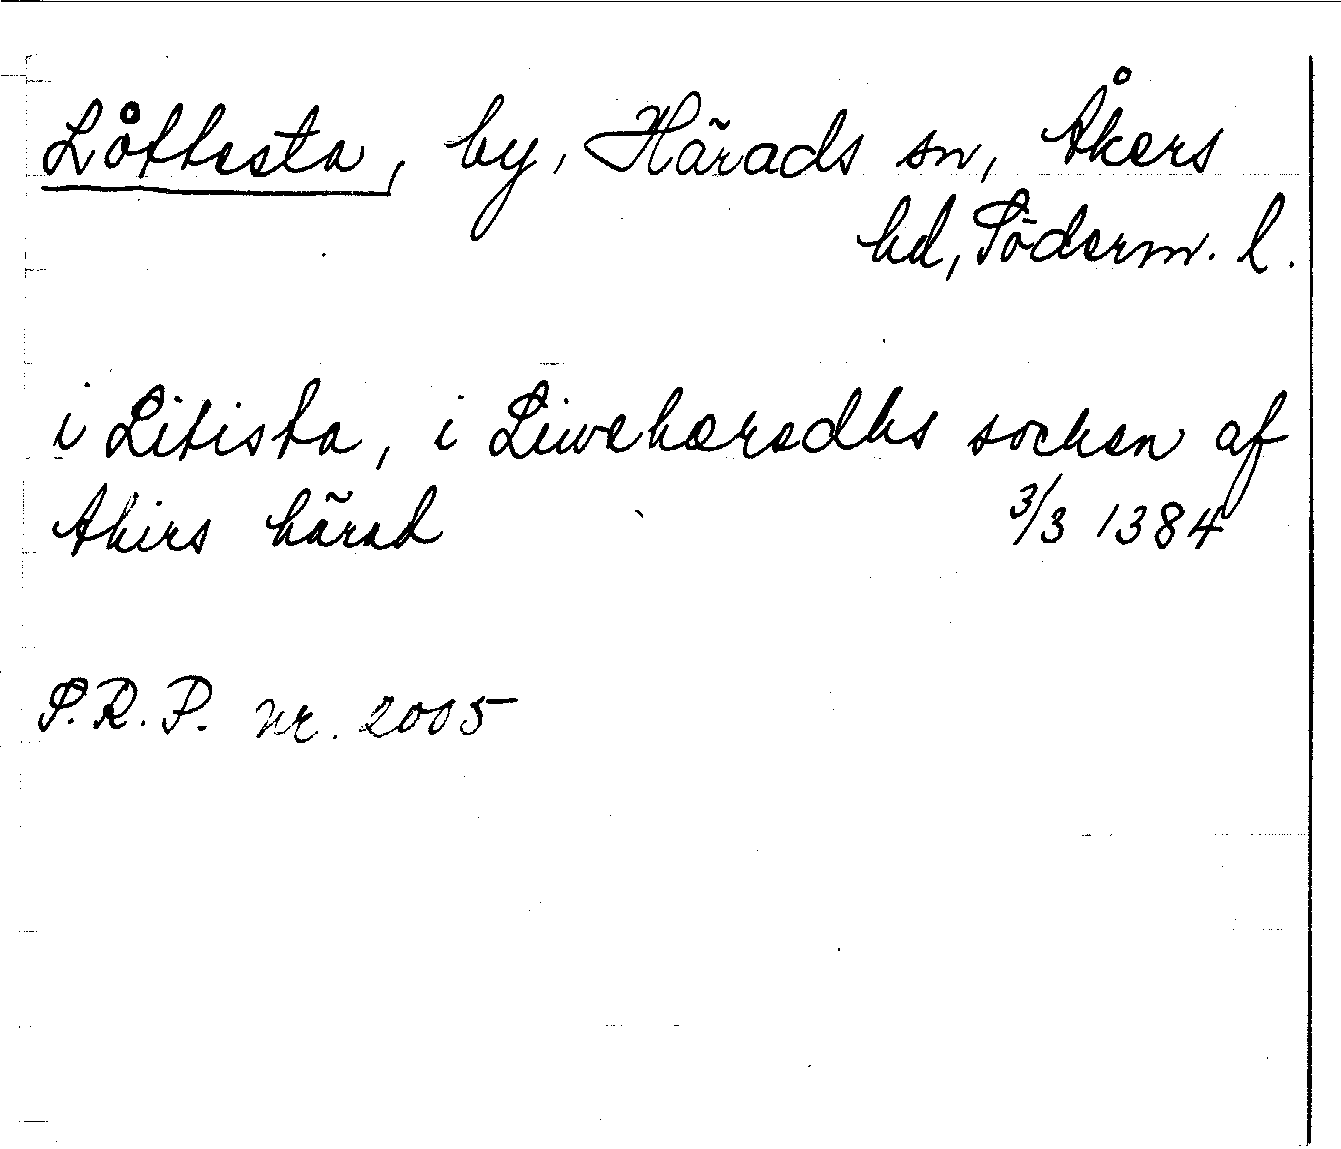 Låttesta, by, Härads sn, Åkers
hd, Söderm. l.
i Litista, i Liweherædhs socken af
Akirs härad 3/3 1384
S.R.P. nr. 2005